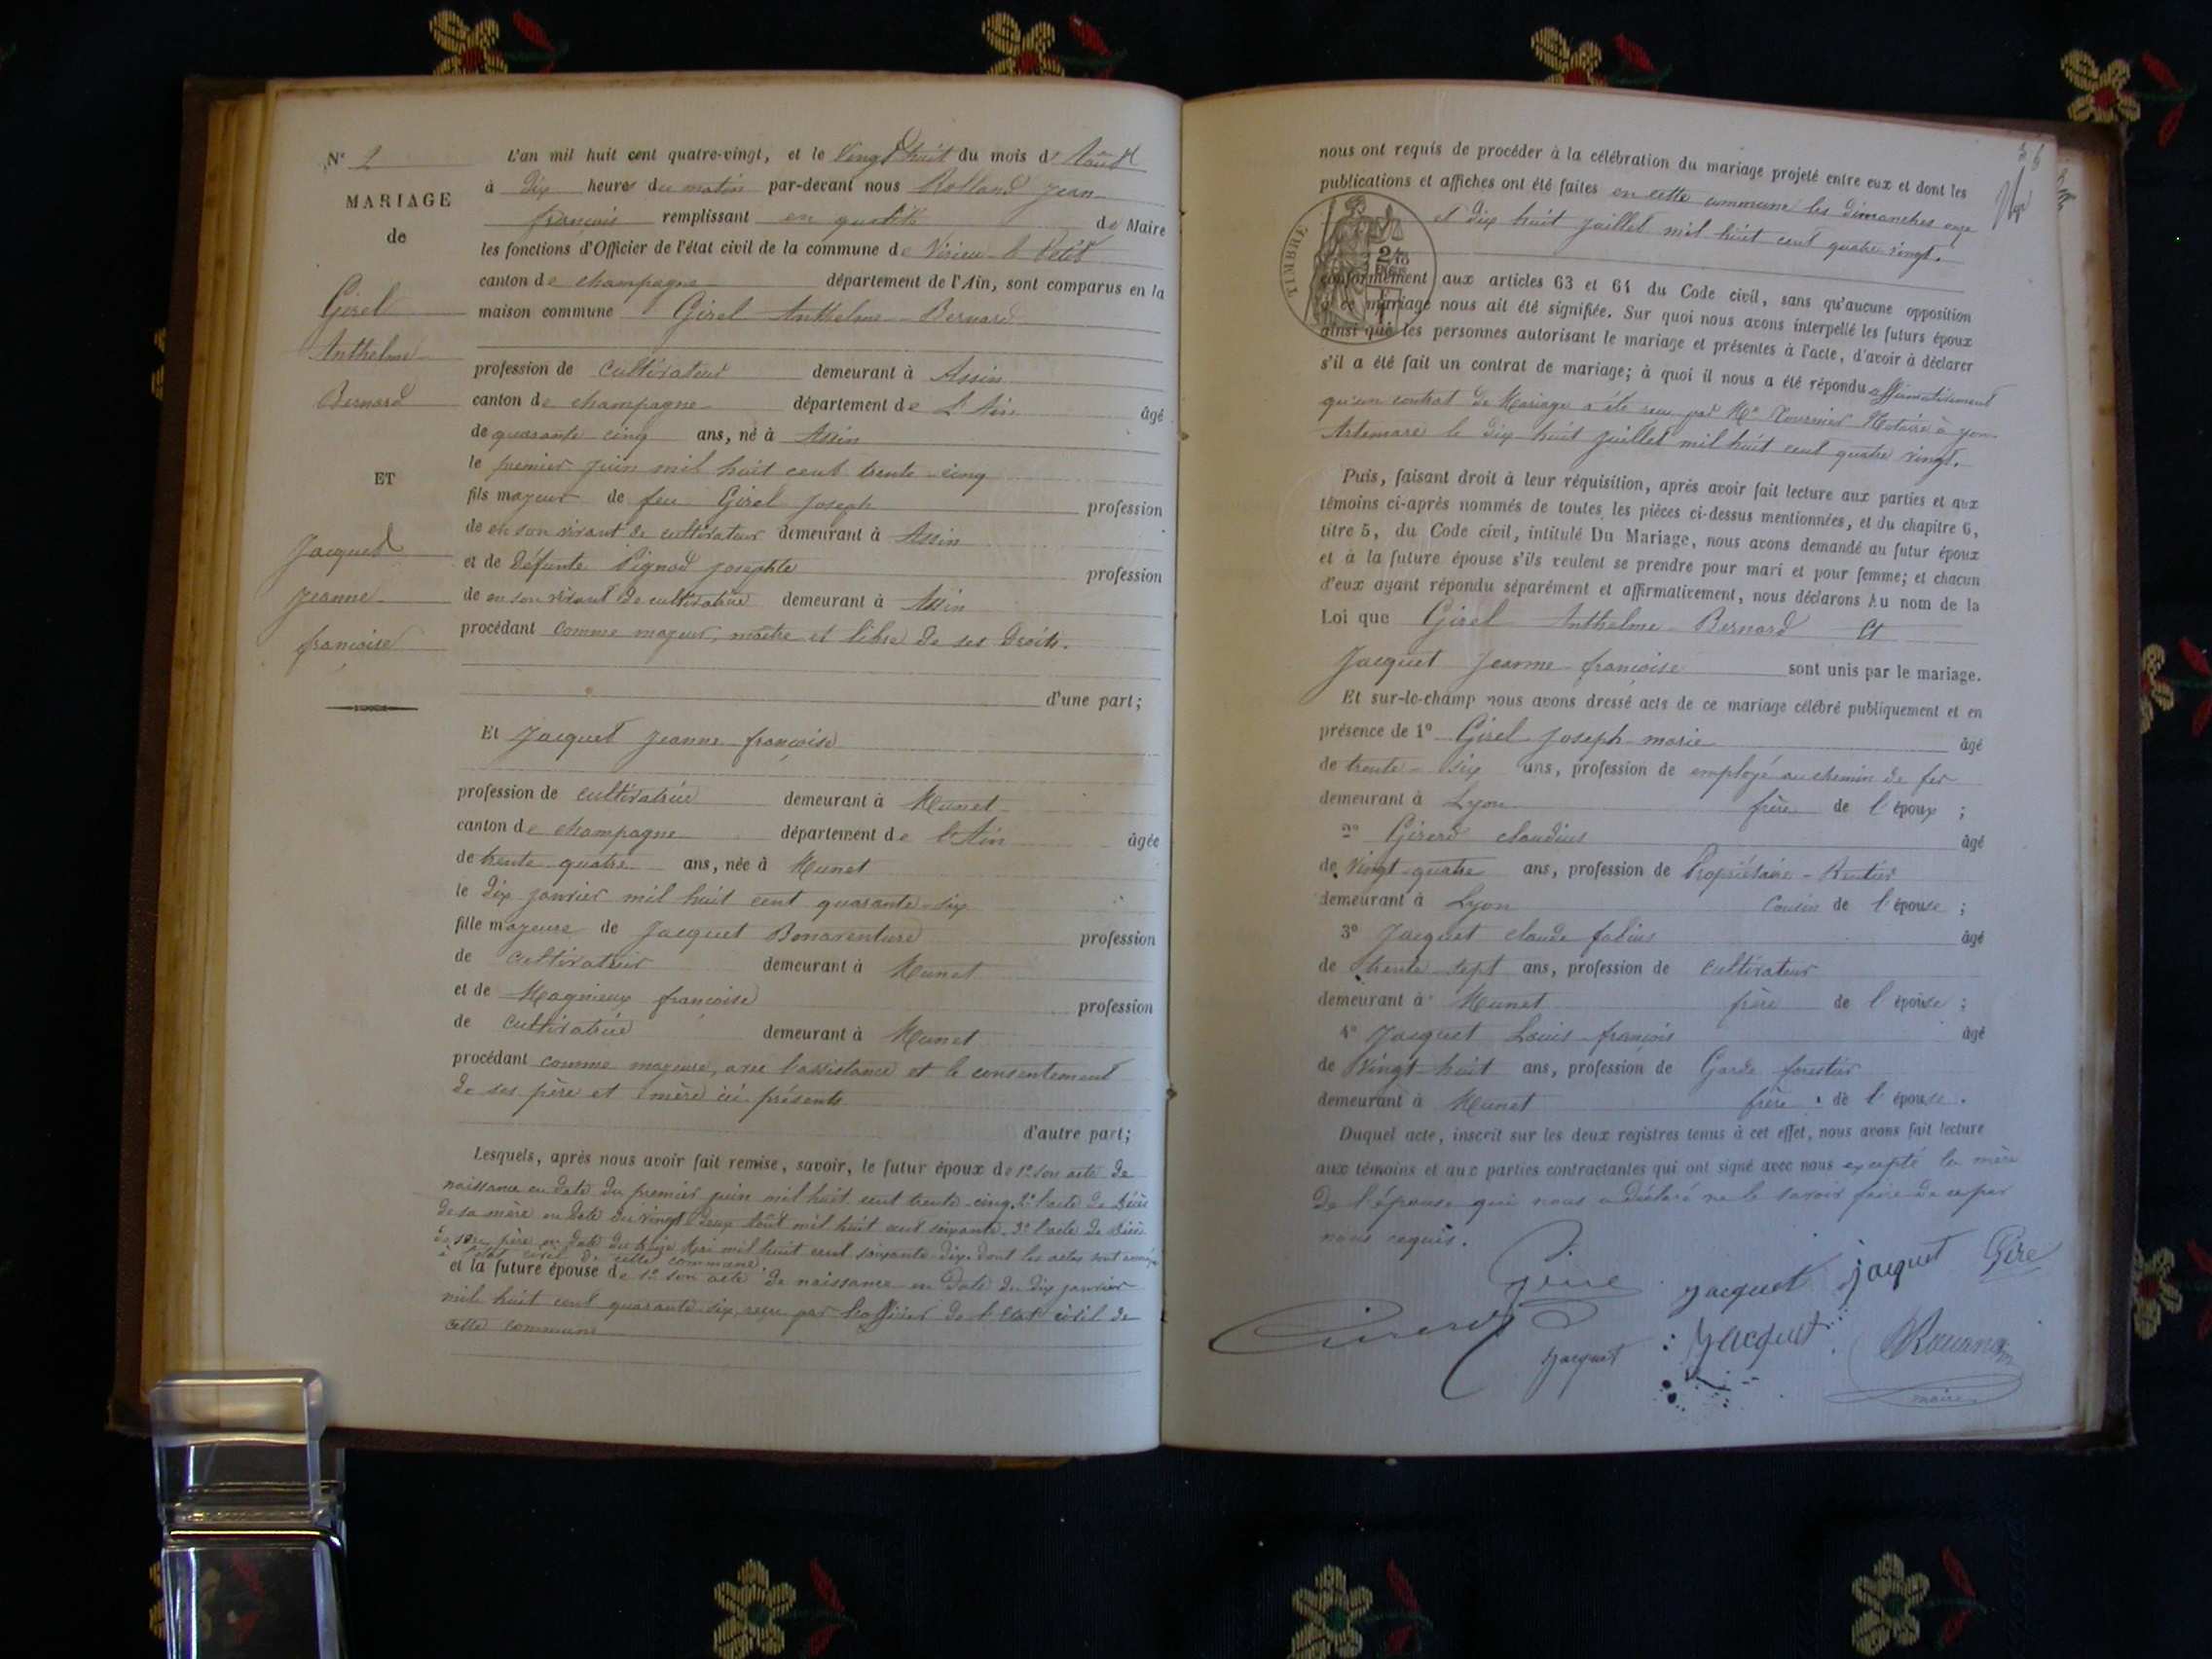 N° 2
MARIAGE
de
Girel
Anthelme
Bernard
ET
Jacquet
Jeanne
françoise
L'an mil huit cent quatre-vingt, et le Vingt huit du mois d' Août
à dix heures du matin par-devant nous Rolland Jean
françois remplissant en qualité de Maire
les fonctions d'Officier de l'état civil de la commune de Virieu-le Petit
canton de champagne département de l'Ain, sont comparus en la
maison commune Girel Anthelme Bernard
profession de Cultivateur demeurant à Assin
canton de champagne département de L'Ain âgé
de quarante cinq ans, né à Assin
le premier juin mil huit cent trente-cinq
fils majeur de feu Girel Joseph profession
de en son vivant de cultivateur demeurant à Assin
et de défunte Pignod josephte profession
de en son vivant de cultivatrice demeurant à Assin
procédant comme majeur, maître et libre de ses droits.
d'une part;
Et Jacquet Jeanne françoise
profession de cultivatrice demeurant à Munet
canton de champagne département de l'Ain âgée
de trente quatre ans, née à Munet
le dix janvier mil huit cent quarante-six
fille majeure de Jacquet Bonaventure profession
de Cultivateur demeurant à Munet
et de Magnieux françoise profession
de Cultivatrice demeurant à Munet
procédant comme majeure, avec l'assistance et le consentement
de ses père et mère ici présents
d'autre part;
Lesquels, après nous avoir fait remise, savoir, le futur époux de 1° son acte de
naissance en date du premier juin mil huit cent trente-cinq. 2° l'acte de décès
de sa mère en date du vingt deux Août mil huit cent soixante. 3° l'acte de décès
de son père en date du treize Mai mil huit cent soixante-dix. dont les actes sont
à l'état civil de cette commune.
et la future épouse de 1° son acte de naissance en date du dix janvier
mil huit cent quarante-six, reçu par l'officier de l'état civil de
cette commune
nous ont requis de procéder à la célébration du mariage projeté entre eux et dont les
publications et affiches ont été faites en cette commune les dimanches onze
et dix huit juillet mil huit cent quatre vingt.
TIMBRE
conformément aux articles 63 et 64 du Code civil, sans qu'aucune opposition
à ce mariage nous ait été signifiée. Sur quoi nous avons interpellé les futurs époux
ainsi que les personnes autorisant le mariage et présentes à l'acte, d'avoir à déclarer
s'il a été fait un contrat de mariage; à quoi il nous a été répondu affirmativement
qu'un contrat de Mariage a été reçu par Me Tournier Notaire à Yon
Artemare le dix huit juillet mil huit cent quatre vingt.
Puis, faisant droit à leur réquisition, après avoir fait lecture aux parties et aux
témoins ci-après nommés de toutes les pièces ci-dessus mentionnées, et du chapitre 6,
titre 5, du Code civil, intitulé Du Mariage, nous avons demandé au futur époux
et à la future épouse s'ils veulent se prendre pour mari et pour femme; et chacun
d'eux ayant répondu séparément et affirmativement, nous déclarons Au nom de la
Loi que Girel Anthelme Bernard Et
Jacquet Jeanne françoise sont unis par le mariage.
Et sur-le-champ nous avons dressé acte de ce mariage célébré publiquement et en
présence de 1° Girel Joseph marie âgé
de trente-six ans, profession de employé au chemin de fer
demeurant à Lyon frère de l'époux ;
2° Girerd claudius âgé
de Vingt-quatre ans, profession de Propriétaire-Rentier
demeurant à Lyon Cousin de l'épouse ;
3° Jacquet claude fabius âgé
de trente-sept ans, profession de cultivateur
demeurant à Munet frère de l'épouse ;
4° Jacquet Louis françois âgé
de Vingt huit ans, profession de Garde forestier
demeurant à Munet frère de l'épouse.
Duquel acte, inscrit sur les deux registres tenus à cet effet, nous avons fait lecture
aux témoins et aux parties contractantes qui ont signé avec nous excepté la mère
de l'épouse qui nous a déclaré ne le savoir faire de ce par
nous requis.
jacquet jacquet
Girerd Jacquet Jacquet
maire